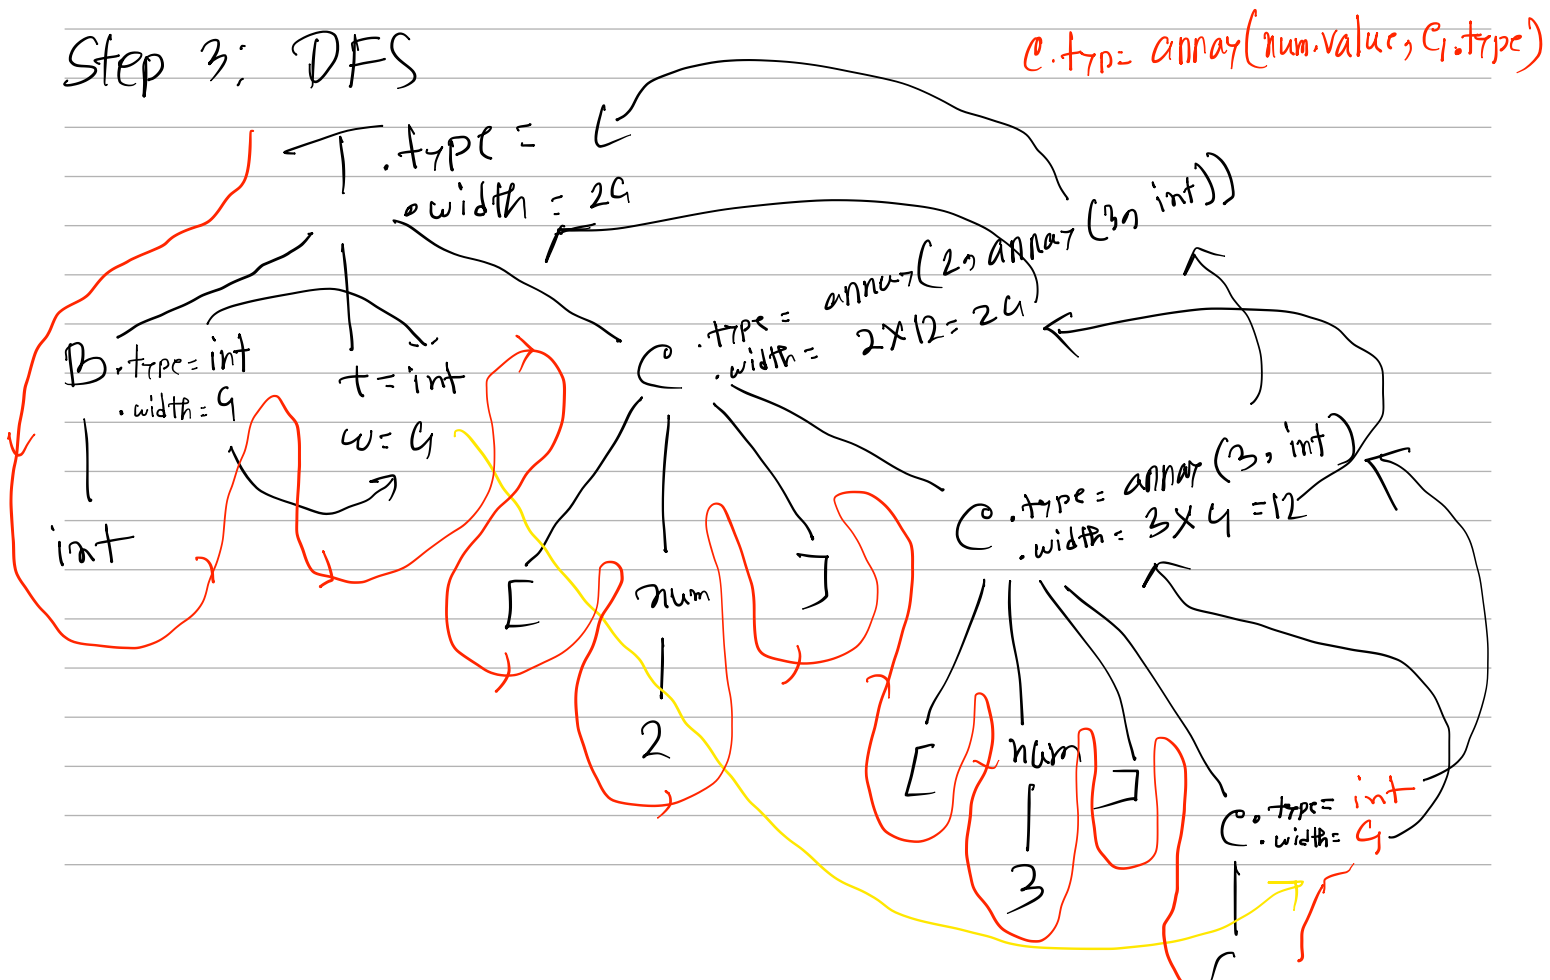 Step 3: DFS
C.typ= array(num.value, C1.type)
T.type =
.width = 24
B.type=int
.width=4
t=int
w=4
int
C.type= array(2, array(3, int))
.width= 2X12=24
[
num
]
2
C.type= array(3, int)
.width= 3X4=12
[
num
]
3
C.type= int
.width= 4